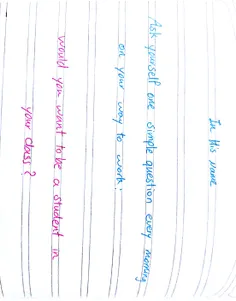 In His Name
Ask yourself one simple question every morning
on your way to work:
would you want to be a student in
your class?